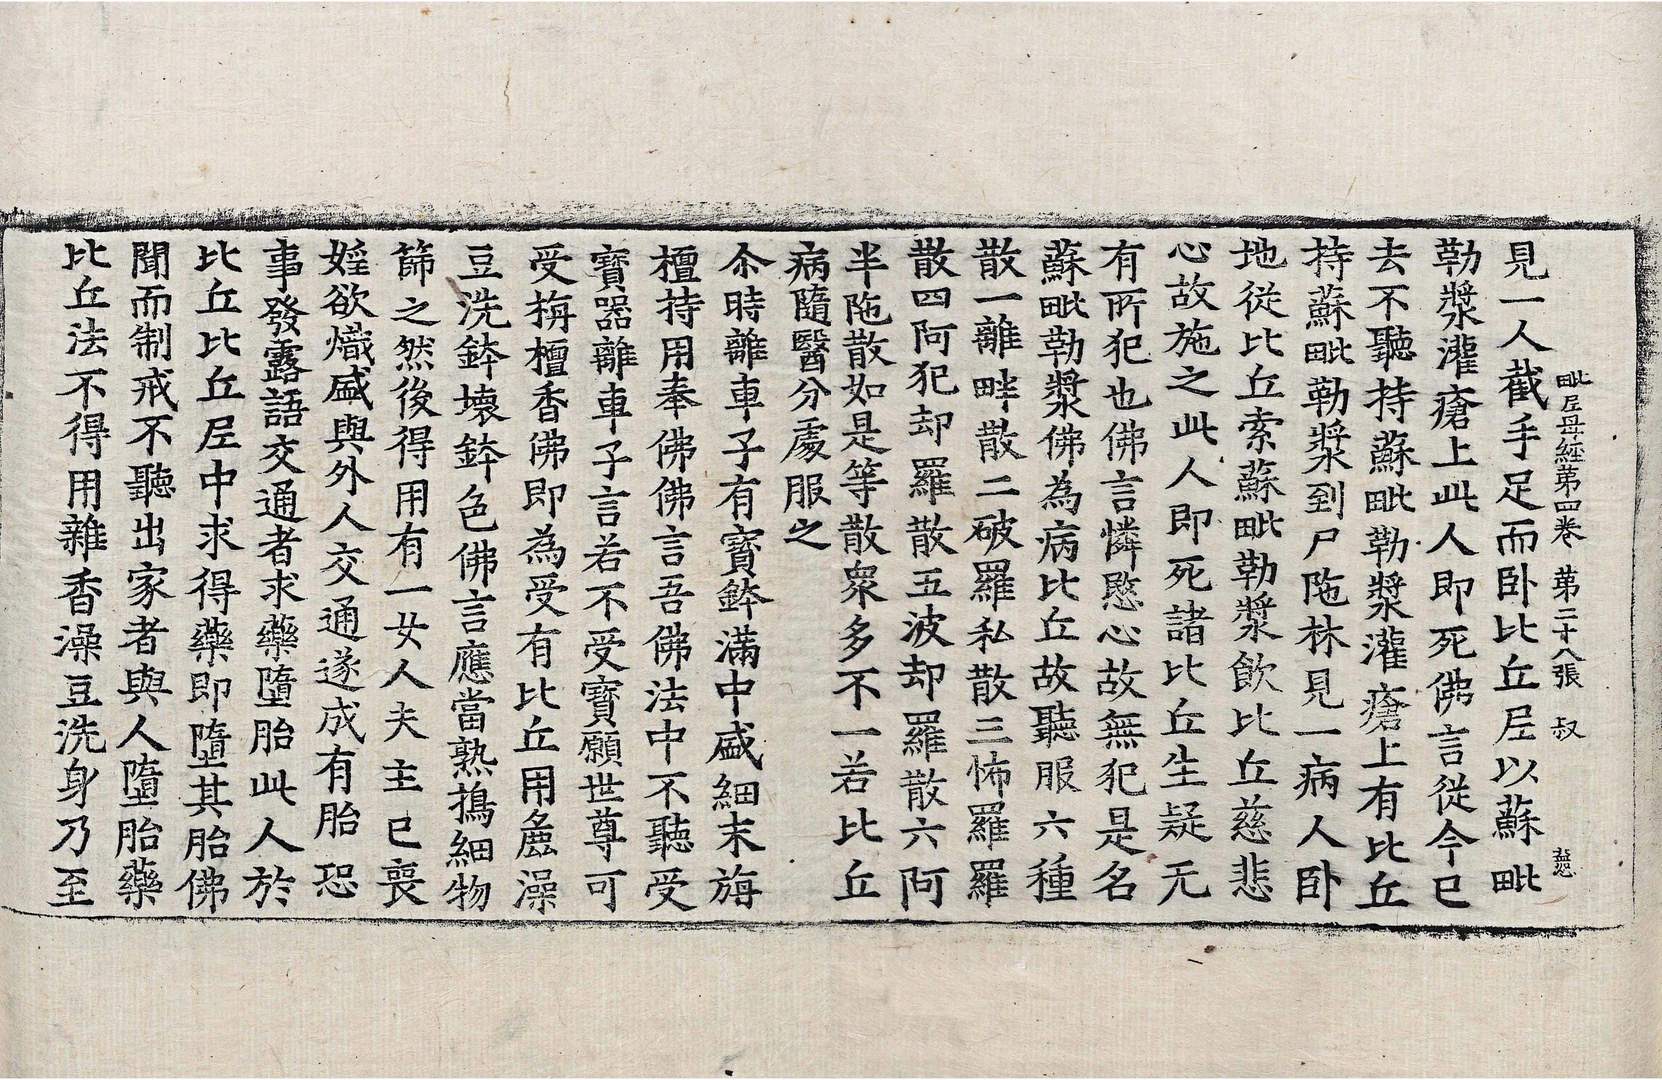 毗尼母經第四卷 第二十八張 叔
見一人截手足而卧比丘尼以蘇毗
勒漿灌瘡上此人即死佛言從今已
去不聽持蘇毗勒漿灌瘡上有比丘
持蘇毗勒漿到尸陁林見一病人卧
地從比丘索蘇毗勒漿飲比丘慈悲
心故施之此人即死諸比丘生疑无
有所犯也佛言憐愍心故無犯是名
蘇毗勒漿佛為病比丘故聽服六種
散一離畔散二破羅私散三怖羅羅
散四阿犯却羅散五波却羅散六阿
半陁散如是等散衆多不一若比丘
病隨醫分處服之
尒時離車子有寶鉢滿中盛細末栴
檀持用奉佛佛言吾佛法中不聽受
寶器離車子言若不受寶願世尊可
受栴檀香佛即為受有比丘用麁澡
豆洗鉢壞鉢色佛言應當熟擣細物
篩之然後得用有一女人夫主已喪
婬欲熾盛與外人交通遂成有胎恐
事發露語交通者求藥墮胎此人於
比丘比丘尼中求得藥即墮其胎佛
聞而制戒不聽出家者與人墮胎藥
比丘法不得用雜香澡豆洗身乃至